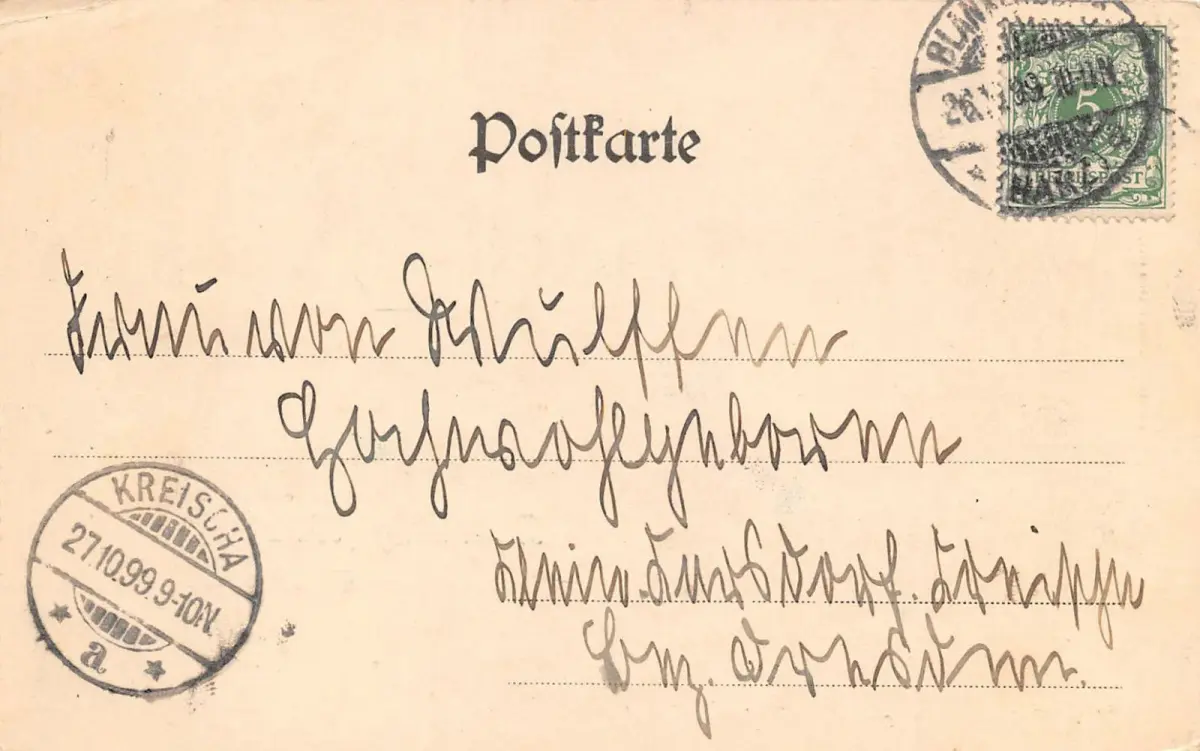 Postkarte
BLANKENBURG
26.10.99. 10-11 N
HARZ
5
REICHSPOST
Frau von Wulffen
Hochwohlgeboren
KREISCHA
27.10.99. 9-10N.
a
Klein-Karsdorf. Kreischa
Bez. Dresden.